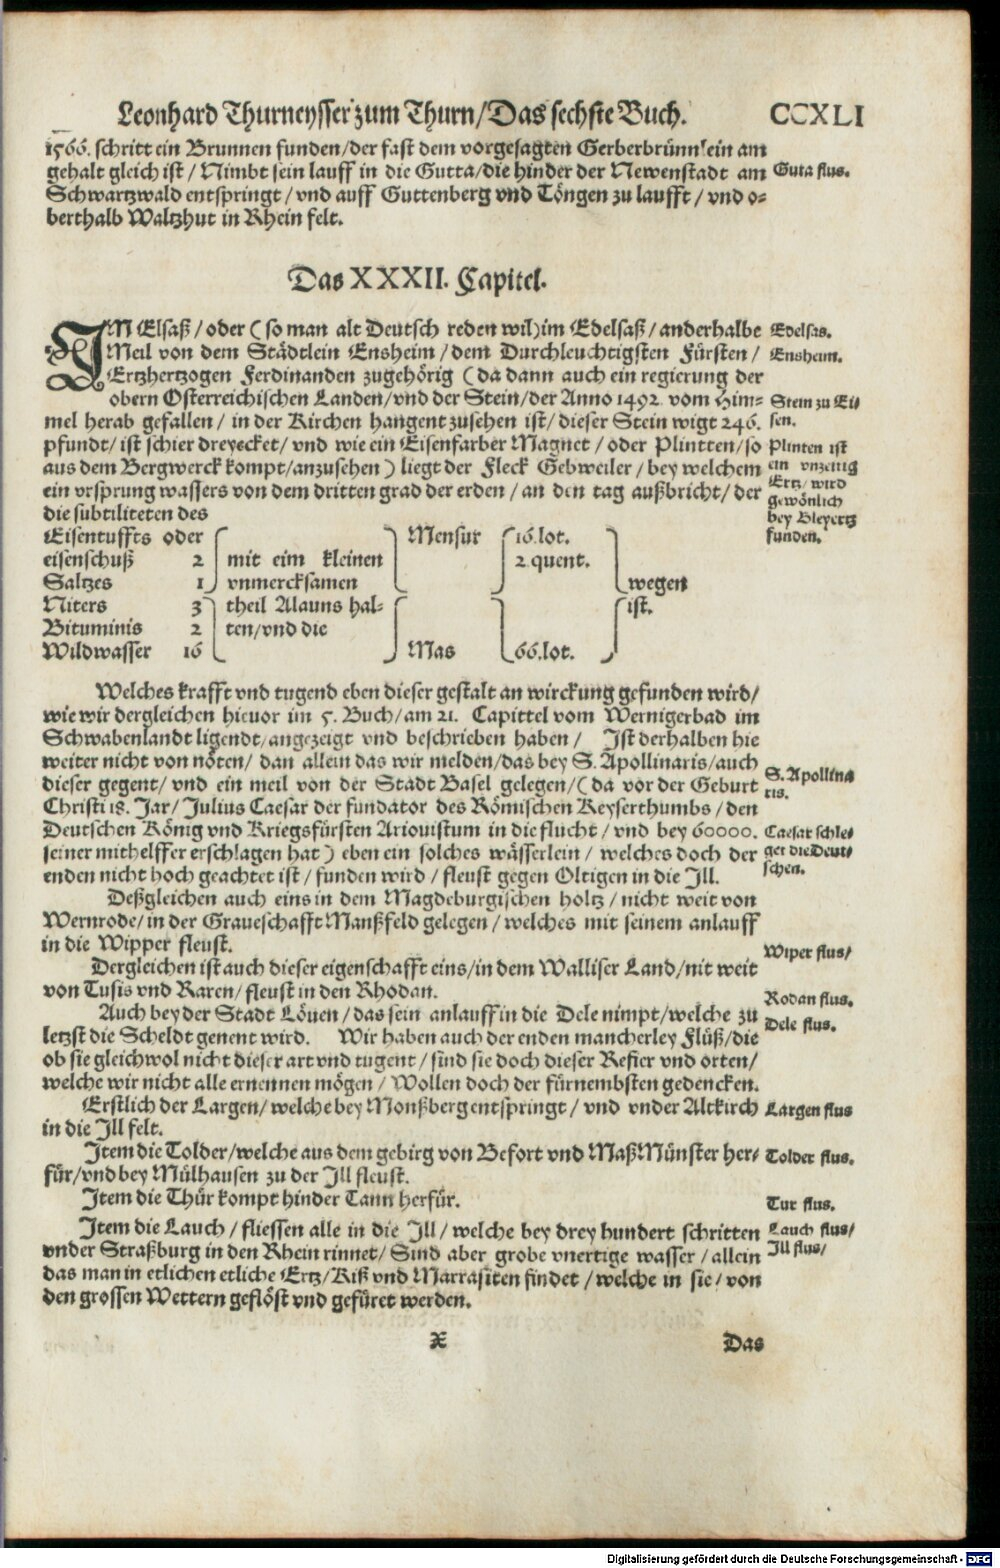 Leonhard Thurneysser zum Thurn/Das sechste Buch. CCXLI
1566. schritt ein Brunnen funden/der fast dem vorgesagten Gerberbrünnlein am
gehalt gleich ist/Nimbt sein lauff in die Gutta/die hinder der Newenstadt am
Guta flus.
Schwartzwald entspringt/vnd auff Guttenberg vnd Töngen zu laufft/vnd o-
berthalb Waltzhut in Rhein felt.
Das XXXII. Capitel.
IM Elsaß/oder (so man alt Deutsch reden wil) im Edelsaß/anderhalbe
Edelsas.
Meil von dem Städtlein Ensheim/dem Durchleuchtigsten Fürsten/
Ensheim.
Ertzhertzogen Ferdinanden zugehörig (da dann auch ein regierung der
obern Osterreichischen Landen/vnd der Stein/der Anno 1492. vom Him-
Stein zu Ei-
mel herab gefallen/in der Kirchen hangent zusehen ist/dieser Stein wigt 246.
sen.
pfundt/ist schier dreyecket/vnd wie ein Eisenfarber Magnet/oder Plintten/so
Plinten ist
aus dem Bergwerck kompt/anzusehen) liegt der Fleck Gebweiler/bey welchem
ein vnzeitig
ein vrsprung wassers von dem dritten grad der erden/an den tag außbricht/der
Ertz/wird
gewönlich
die subtiliteten des
bey Bleyertz
funden.
Eisentuffts oder
eisenschuß 2
Saltzes 1
Niters 3
Bituminis 2
Wildwasser 16
mit eim kleinen
vnmercksamen
theil Alauns hal-
ten/vnd die
Mensur
Mas
16. lot.
2 quent.
66. lot.
wegen
ist.
Welches krafft vnd tugend eben dieser gestalt an wirckung gefunden wird/
wie wir dergleichen hieuor im 5. Buch/am 21. Capittel vom Wernigerbad im
Schwabenlandt ligendt/angezeigt vnd beschrieben haben/ Ist derhalben hie
weiter nicht von nöten/dan allein das wir melden/das bey S. Apollinaris/auch
S. Apollina
dieser gegent/vnd ein meil von der Stadt Basel gelegen/(da vor der Geburt
ris.
Christi 18. Jar/Julius Caesar der fundator des Römischen Keyserthumbs/den
Deutschen König vnd Kriegsfürsten Ariouistum in die flucht/vnd bey 60000.
Caesar schle-
seiner mithelffer erschlagen hat) eben ein solches wässerlein/welches doch der
get die Deut-
enden nicht hoch geachtet ist/funden wird/fleust gegen Oltigen in die Ill.
schen.
Deßgleichen auch eins in dem Magdeburgischen holtz/nicht weit von
Wernrode/in der Graueschafft Manßfeld gelegen/welches mit seinem anlauff
in die Wipper fleust.
Wiper flus/
Dergleichen ist auch dieser eigenschafft eins/in dem Walliser Land/nit weit
von Tusis vnd Raren/fleust in den Rhodan.
Rodan flus.
Auch bey der Stadt Löuen/das sein anlauff in die Dele nimpt/welche zu
Dele flus.
letzst die Scheldt genent wird. Wir haben auch der enden mancherley Flüß/die
ob sie gleichwol nicht dieser art vnd tugent/sind sie doch dieser Refier vnd orten/
welche wir nicht alle ernennen mögen/Wollen doch der fürnembsten gedencken.
Erstlich der Largen/welche bey Monßberg entspringt/vnd vnder Altkirch
Largen flus
in die Ill felt.
Item die Tolder/welche aus dem gebirg von Befort vnd MaßMünster her-
Tolder flus.
für/vnd bey Mülhausen zu der Ill fleust.
Item die Thür kompt hinder Tann herfür.
Tur flus.
Item die Lauch/fliessen alle in die Ill/welche bey drey hundert schritten
Lauch flus/
vnder Straßburg in den Rhein rinnet/Sind aber grobe vnertige wasser/allein
Ill flus/
das man in etlichen etliche Ertz/Kiß vnd Marrasiten findet/welche in sie/von
den grossen Wettern geflöst vnd gefüret werden.
X Das
Digitalisierung gefördert durch die Deutsche Forschungsgemeinschaft - DFG